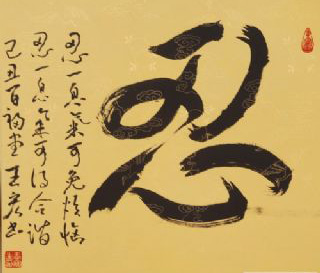 忍
忍一息之气可免烦恼
忍一息之气可得合谐
己丑百福堂王君书